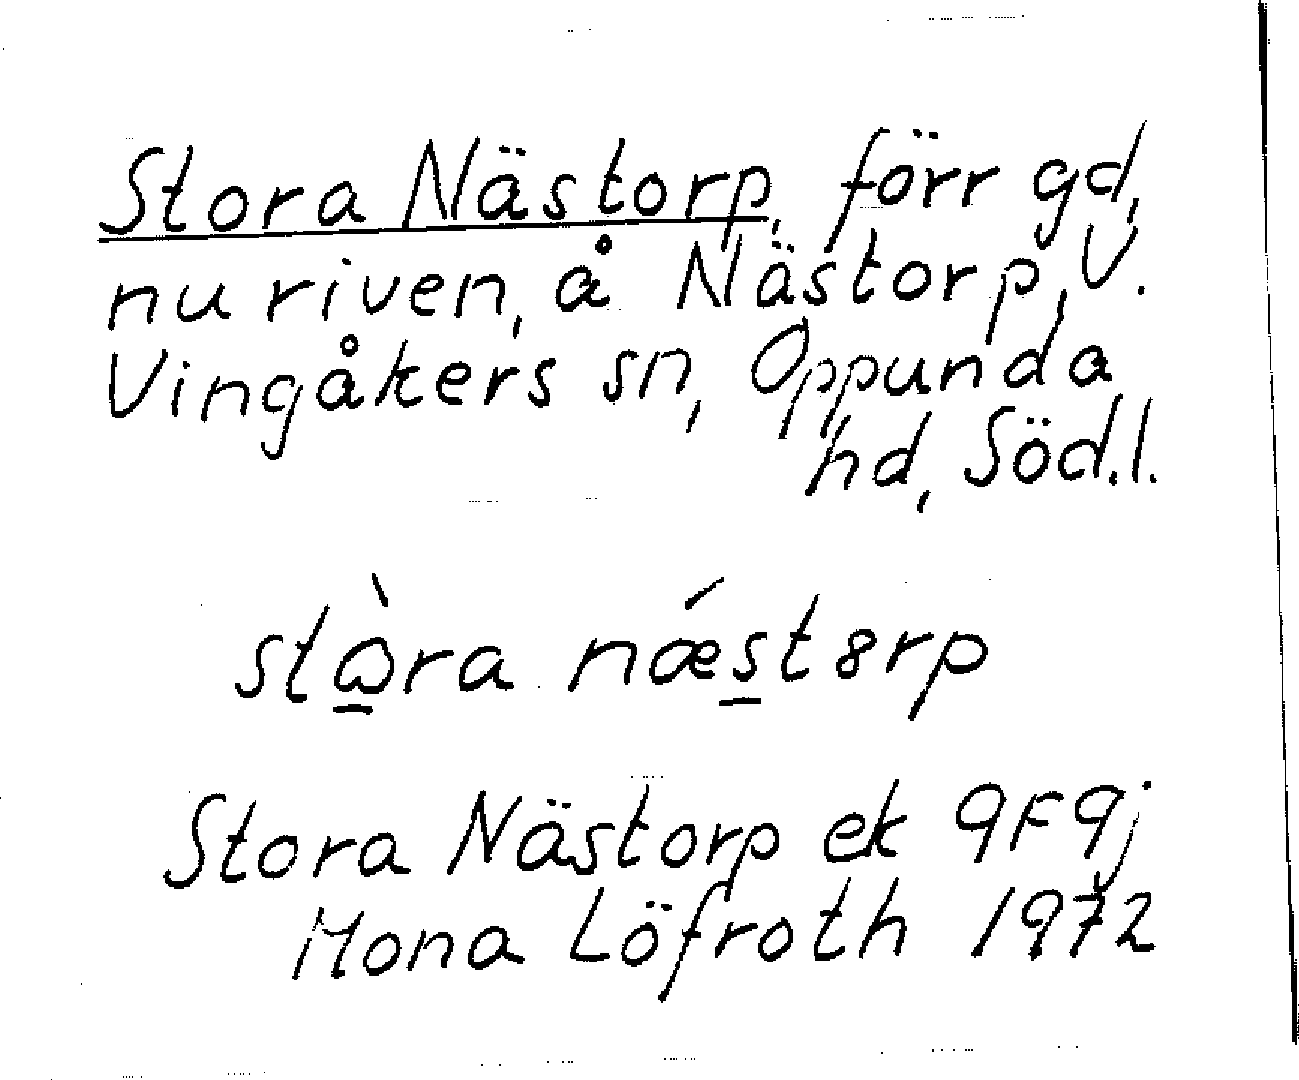 Stora Nästorp, förr gd,
nu riven, å Nästorp, V.
Vingåkers sn, Oppunda
hd, Söd.l.
stⱺ̠̀ra nǽs̠t8rp
Stora Nästorp ek 9F9j
Mona Löfroth 1972